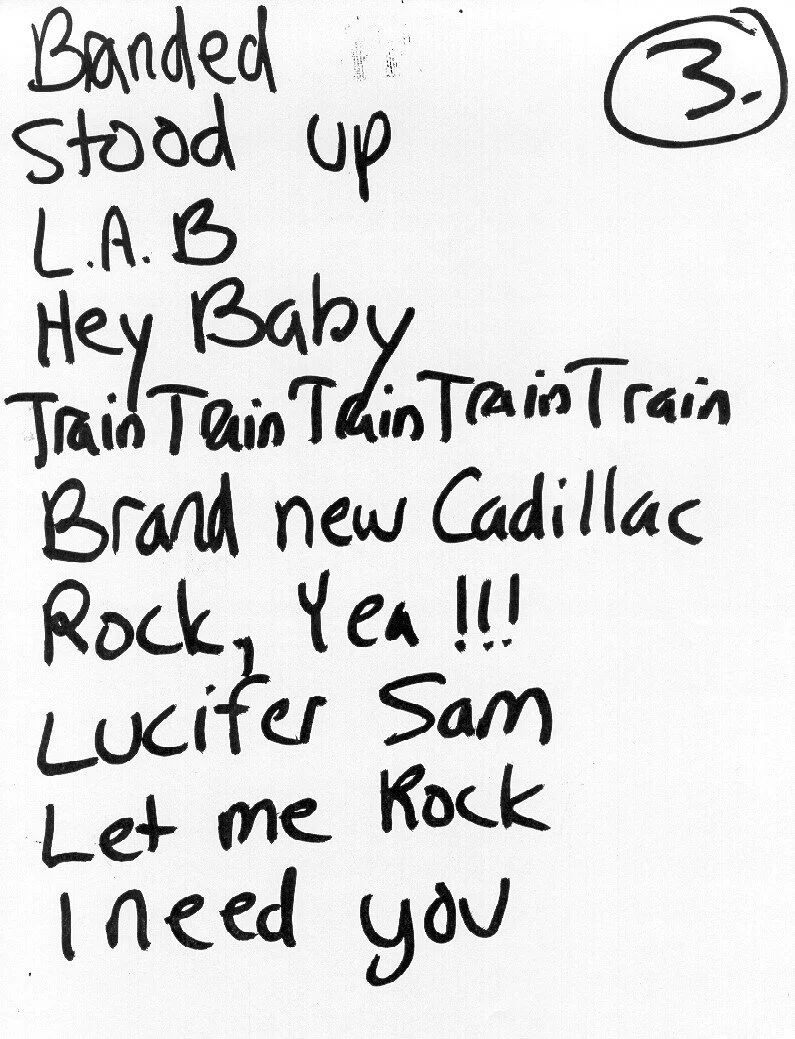 Banded
3.
Stood up
L.A.B
Hey Baby
Train Train Train Train Train
Brand new Cadillac
Rock, Yea !!!
Lucifer Sam
Let me Rock
I need you